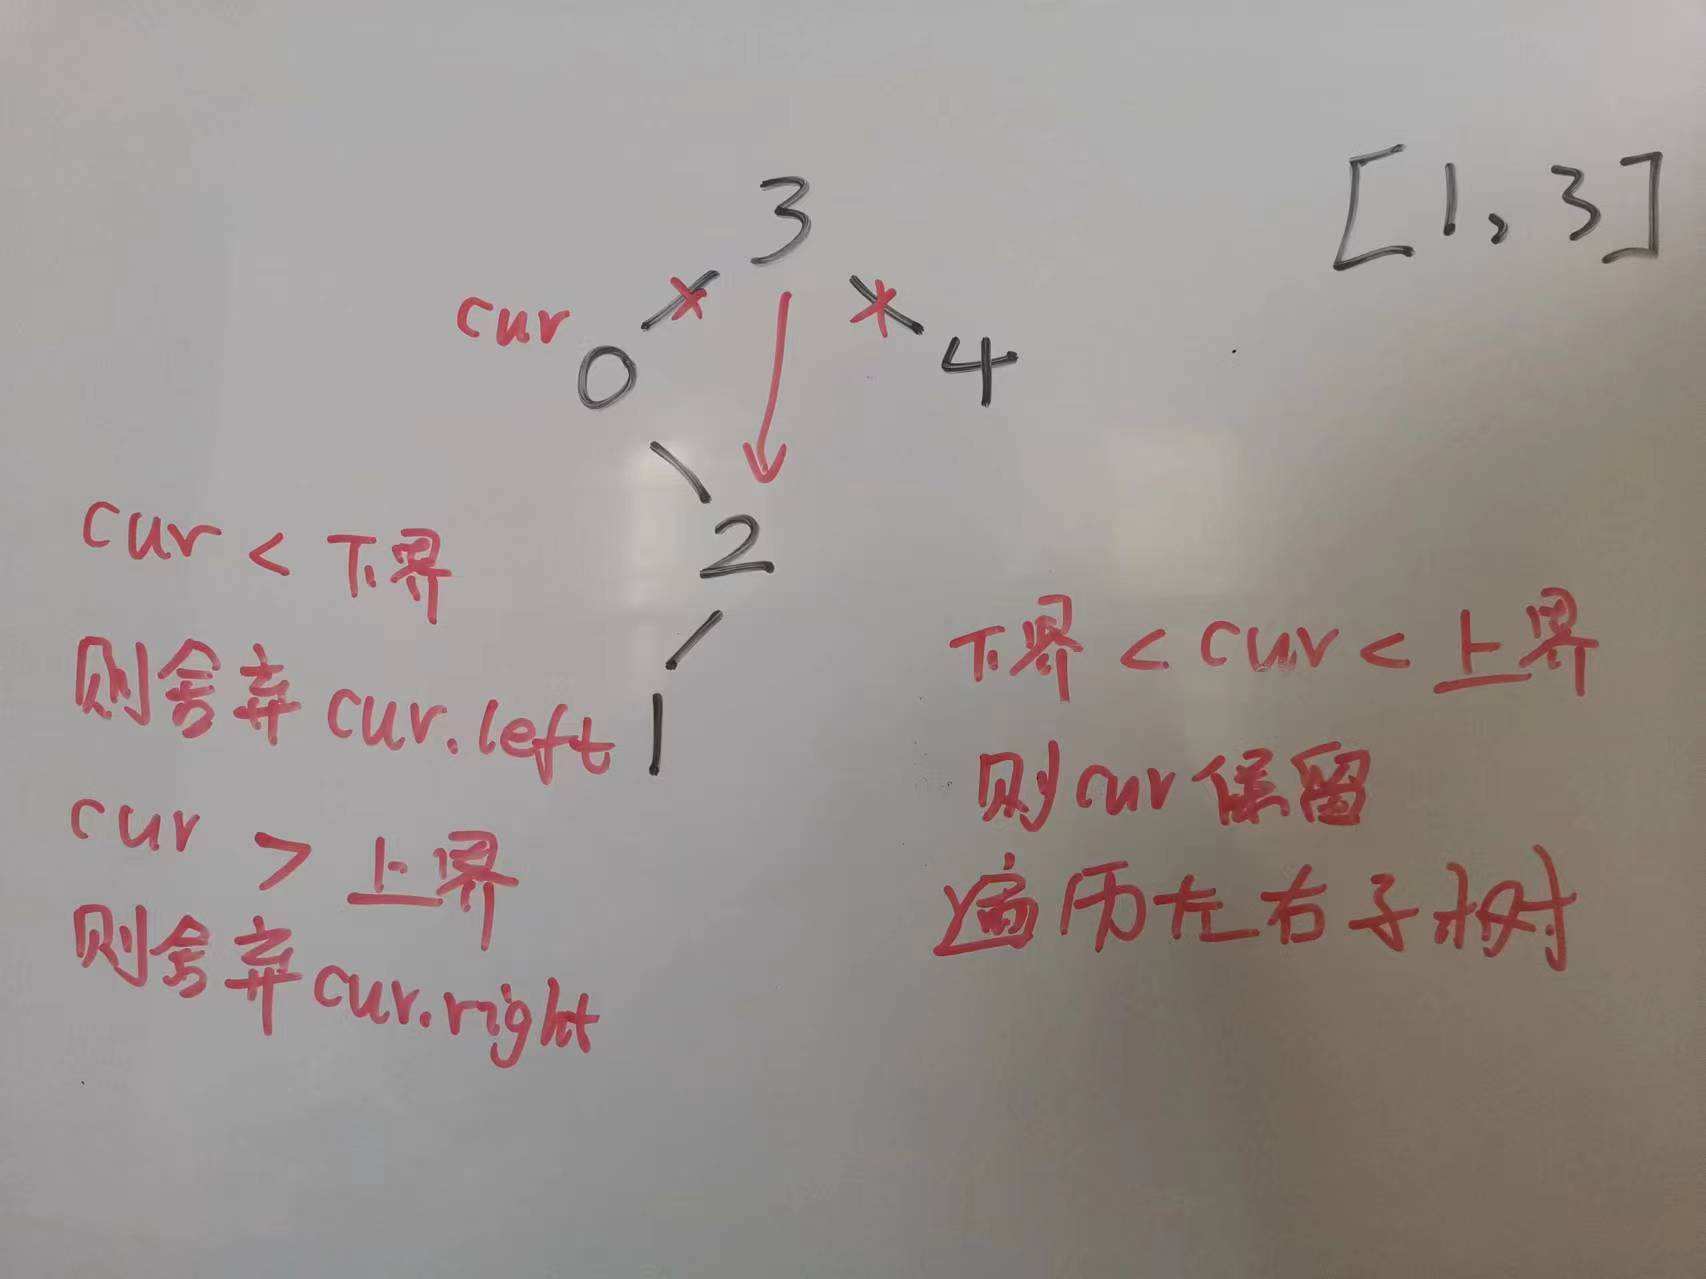 [1,3]
3
cur
0 4
2
1
cur < 下界
则舍弃 cur.left
cur > 上界
则舍弃 cur.right
下界 < cur < 上界
则cur保留
遍历左右子树